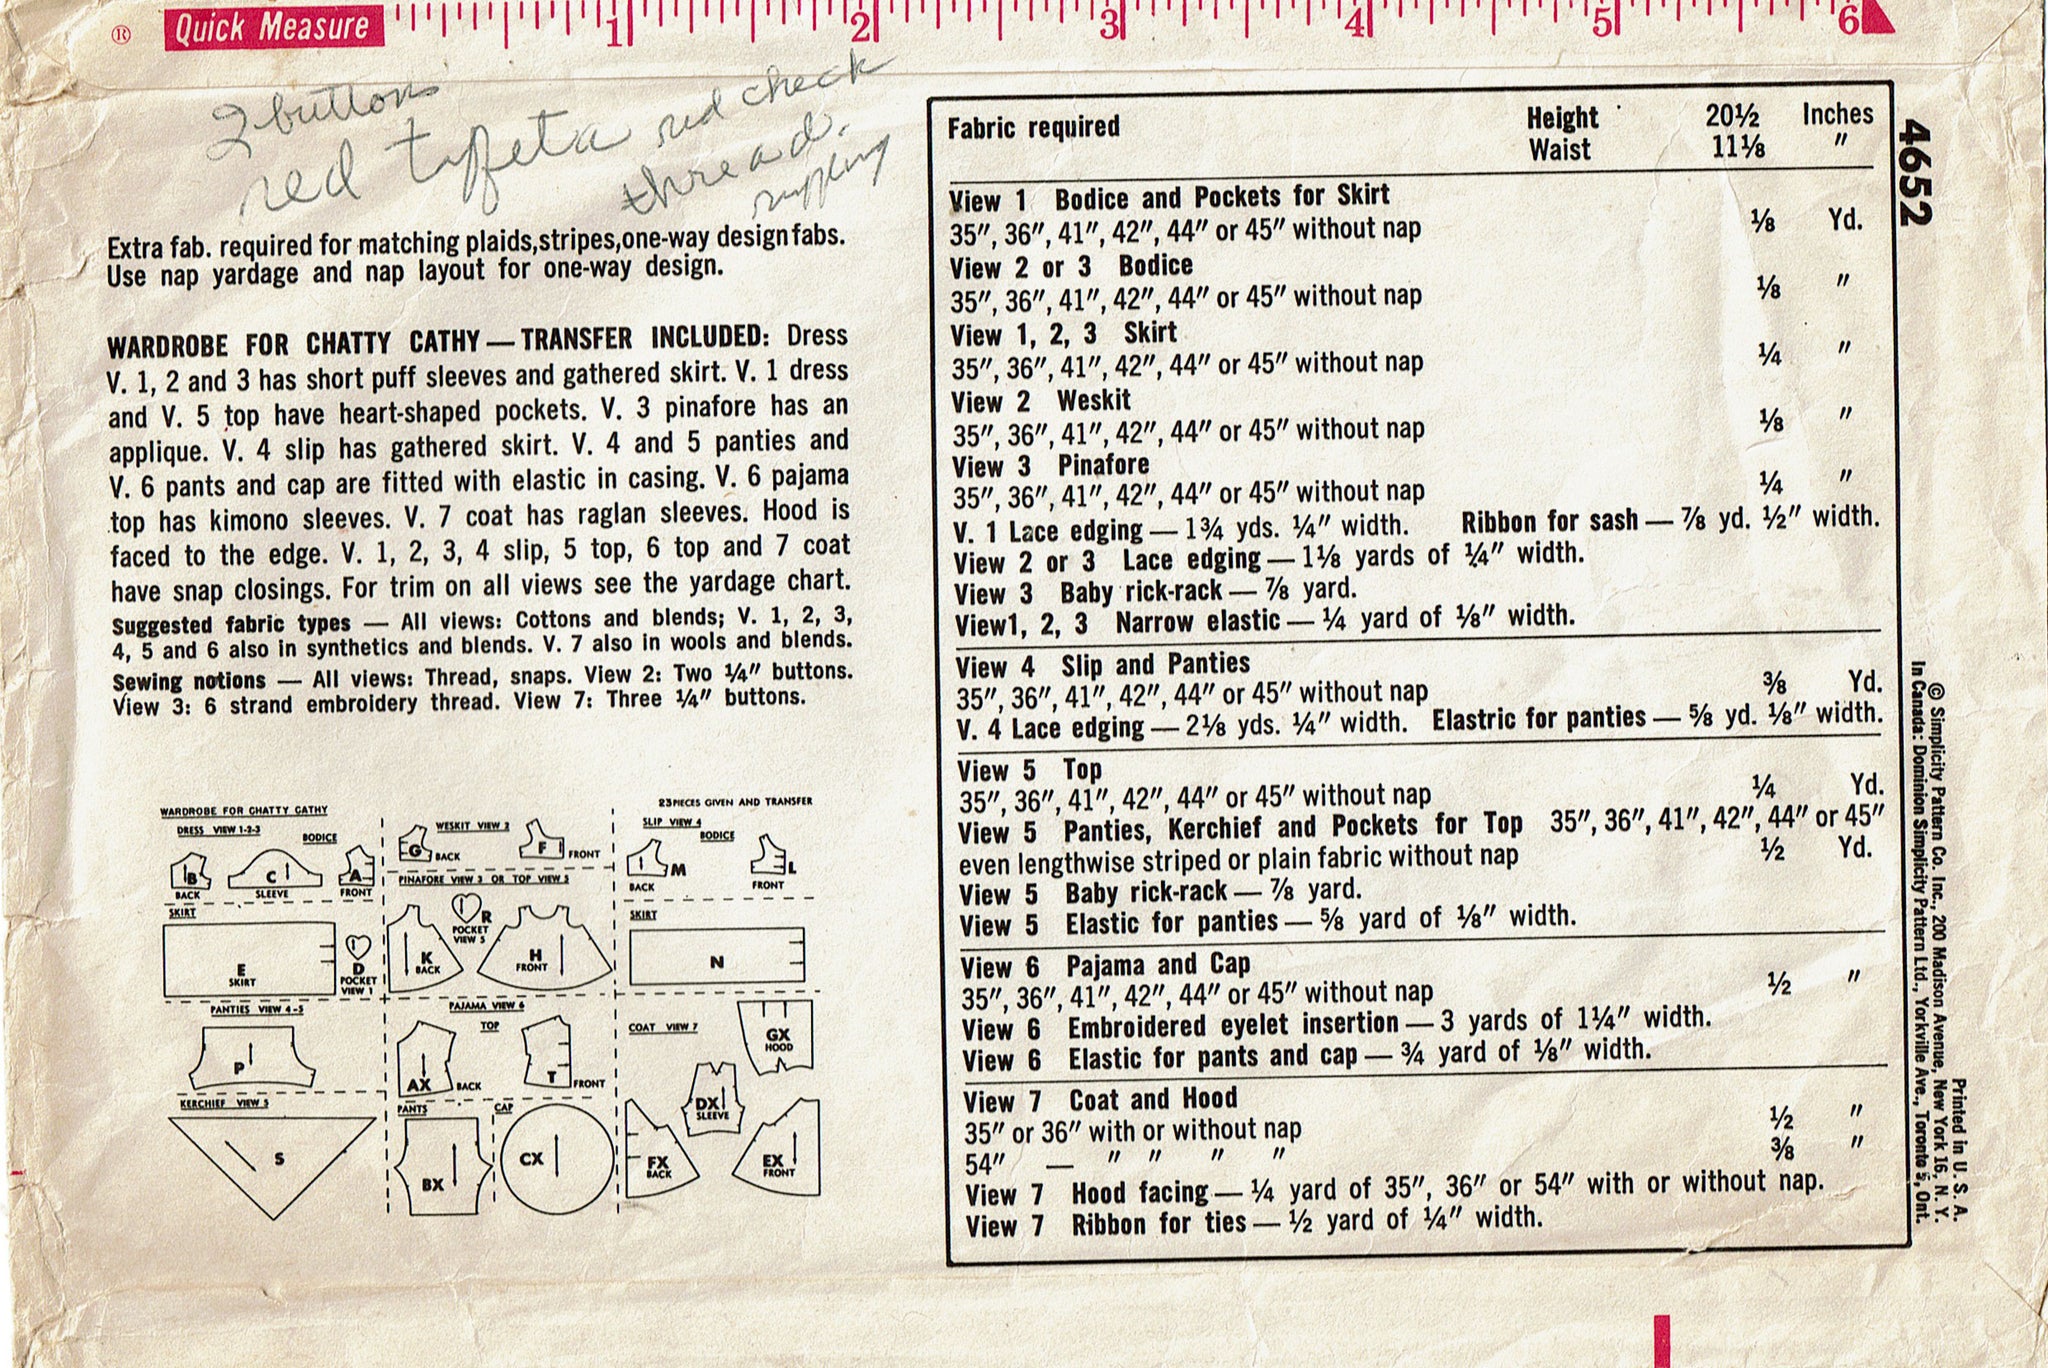 ® Quick Measure 1 2 3 4 5 6
2 buttons
red taffeta red check
thread.
ruffling
Extra fab. required for matching plaids,stripes,one-way design fabs.
Use nap yardage and nap layout for one-way design.
WARDROBE FOR CHATTY CATHY — TRANSFER INCLUDED: Dress
V. 1, 2 and 3 has short puff sleeves and gathered skirt. V. 1 dress
and V. 5 top have heart-shaped pockets. V. 3 pinafore has an
applique. V. 4 slip has gathered skirt. V. 4 and 5 panties and
V. 6 pants and cap are fitted with elastic in casing. V. 6 pajama
top has kimono sleeves. V. 7 coat has raglan sleeves. Hood is
faced to the edge. V. 1, 2, 3, 4 slip, 5 top, 6 top and 7 coat
have snap closings. For trim on all views see the yardage chart.
Suggested fabric types — All views: Cottons and blends; V. 1, 2, 3,
4, 5 and 6 also in synthetics and blends. V. 7 also in wools and blends.
Sewing notions — All views: Thread, snaps. View 2: Two ¼″ buttons.
View 3: 6 strand embroidery thread. View 7: Three ¼″ buttons.
WARDROBE FOR CHATTY CATHY
23 PIECES GIVEN AND TRANSFER
DRESS VIEW 1-2-3
BODICE
B
BACK
C
SLEEVE
A
FRONT
SKIRT
E
SKIRT
D
POCKET
VIEW 1
PANTIES VIEW 4-5
P
KERCHIEF VIEW 5
S
WESKIT VIEW 2
G BACK
F FRONT
PINAFORE VIEW 3 OR TOP VIEW 5
K
BACK
R
POCKET
VIEW 5
H
FRONT
PAJAMA VIEW 6
TOP
AX BACK
T FRONT
PANTS
BX
CAP
CX
SLIP VIEW 4
BODICE
M
BACK
L
FRONT
SKIRT
N
COAT VIEW 7
GX
HOOD
DX
SLEEVE
FX
BACK
EX
FRONT
Fabric required Height 20½ Inches
Waist 11⅛ ″
View 1 Bodice and Pockets for Skirt
35″, 36″, 41″, 42″, 44″ or 45″ without nap ⅛ Yd.
View 2 or 3 Bodice
35″, 36″, 41″, 42″, 44″ or 45″ without nap ⅛ ″
View 1, 2, 3 Skirt
35″, 36″, 41″, 42″, 44″ or 45″ without nap ¼ ″
View 2 Weskit
35″, 36″, 41″, 42″, 44″ or 45″ without nap ⅛ ″
View 3 Pinafore
35″, 36″, 41″, 42″, 44″ or 45″ without nap ¼ ″
V. 1 Lace edging — 1¾ yds. ¼″ width. Ribbon for sash — ⅞ yd. ½″ width.
View 2 or 3 Lace edging — 1⅛ yards of ¼″ width.
View 3 Baby rick-rack — ⅞ yard.
View1, 2, 3 Narrow elastic — ¼ yard of ⅛″ width.
View 4 Slip and Panties
35″, 36″, 41″, 42″, 44″ or 45″ without nap ⅜ Yd.
V. 4 Lace edging — 2⅛ yds. ¼″ width. Elastric for panties — ⅝ yd. ⅛″ width.
View 5 Top
35″, 36″, 41″, 42″, 44″ or 45″ without nap ¼ Yd.
View 5 Panties, Kerchief and Pockets for Top 35″, 36″, 41″, 42″, 44″ or 45″
even lengthwise striped or plain fabric without nap ½ Yd.
View 5 Baby rick-rack — ⅞ yard.
View 5 Elastic for panties — ⅝ yard of ⅛″ width.
View 6 Pajama and Cap
35″, 36″, 41″, 42″, 44″ or 45″ without nap ½ ″
View 6 Embroidered eyelet insertion — 3 yards of 1¼″ width.
View 6 Elastic for pants and cap — ¾ yard of ⅛″ width.
View 7 Coat and Hood
35″ or 36″ with or without nap ½ ″
54″ — ″ ″ ″ ″ ⅜ ″
View 7 Hood facing — ¼ yard of 35″, 36″ or 54″ with or without nap.
View 7 Ribbon for ties — ½ yard of ¼″ width.
4652
Printed in U. S. A.
© Simplicity Pattern Co. Inc., 200 Madison Avenue, New York 16, N. Y.
In Canada: Dominion Simplicity Pattern Ltd., Yorkville Ave., Toronto 5, Ont.